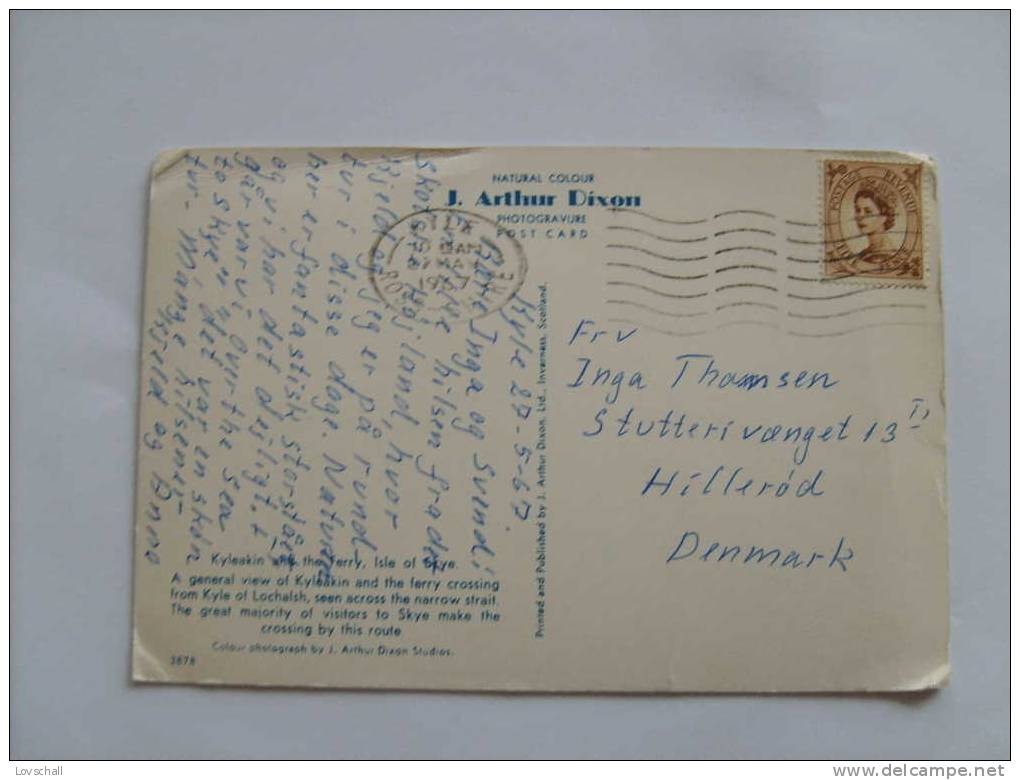 NATURAL COLOUR
J. Arthur Dixon
PHOTOGRAVURE
POST CARD
POSTAGE REVENUE
27 MAY
1967
Kyle 27-5-67.
Kære Inga og Svend!
hilsen fra det
Skotske Højland, hvor
Kjeld og jeg er på rund
tur i disse dage. Naturen
her er fantastisk storslået
og vi har det dejligt. I
går var vi "Over the sea
to skye" det var en skøn
tur. Mange hilsener
Kjeld og Anne
Frv
Inga Thomsen
Stutterivænget 13 I,
Hillerød
Denmark
Printed and Published by J. Arthur Dixon, Ltd., Inverness, Scotland.
Kyleakin and the ferry, Isle of Skye.
A general view of Kyleakin and the ferry crossing
from Kyle of Lochalsh, seen across the narrow strait.
The great majority of visitors to Skye make the
crossing by this route
Colour photograph by J. Arthur Dixon Studios.
3878
Lovschall
www.delcampe.net